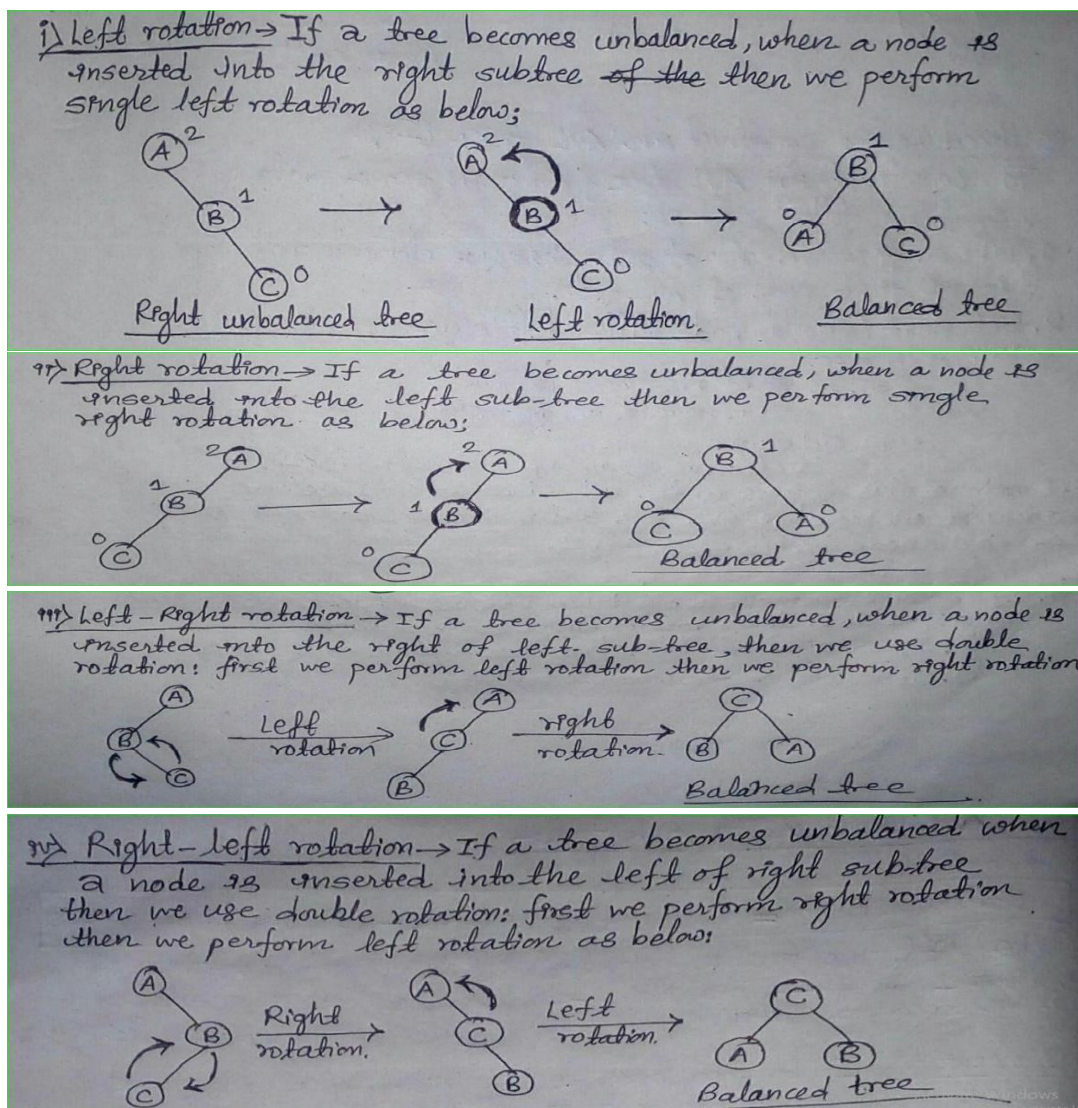 i) Left rotation → If a tree becomes unbalanced, when a node is
inserted into the right subtree of the then we perform
single left rotation as below;
A 2
B 1
C 0
A 2
B 1
C 0
B 1
0 A
C 0
Right unbalanced tree
Left rotation.
Balanced tree
ii) Right rotation → If a tree becomes unbalanced, when a node is
inserted into the left sub-tree then we perform single
right rotation as below;
2 A
1 B
0 C
2 A
1 B
0 C
B 1
0 C
A 0
Balanced tree
iii) Left-Right rotation → If a tree becomes unbalanced, when a node is
inserted into the right of left sub-tree, then we use double
rotation: first we perform left rotation then we perform right rotation
A
B
C
Left
rotation
A
C
B
right
rotation.
C
B A
Balanced tree
iv) Right-left rotation → If a tree becomes unbalanced when
a node is inserted into the left of right sub-tree
then we use double rotation: first we perform right rotation
then we perform left rotation as below:
A
B
C
Right
rotation.
A
C
B
Left
rotation.
C
A B
Balanced tree